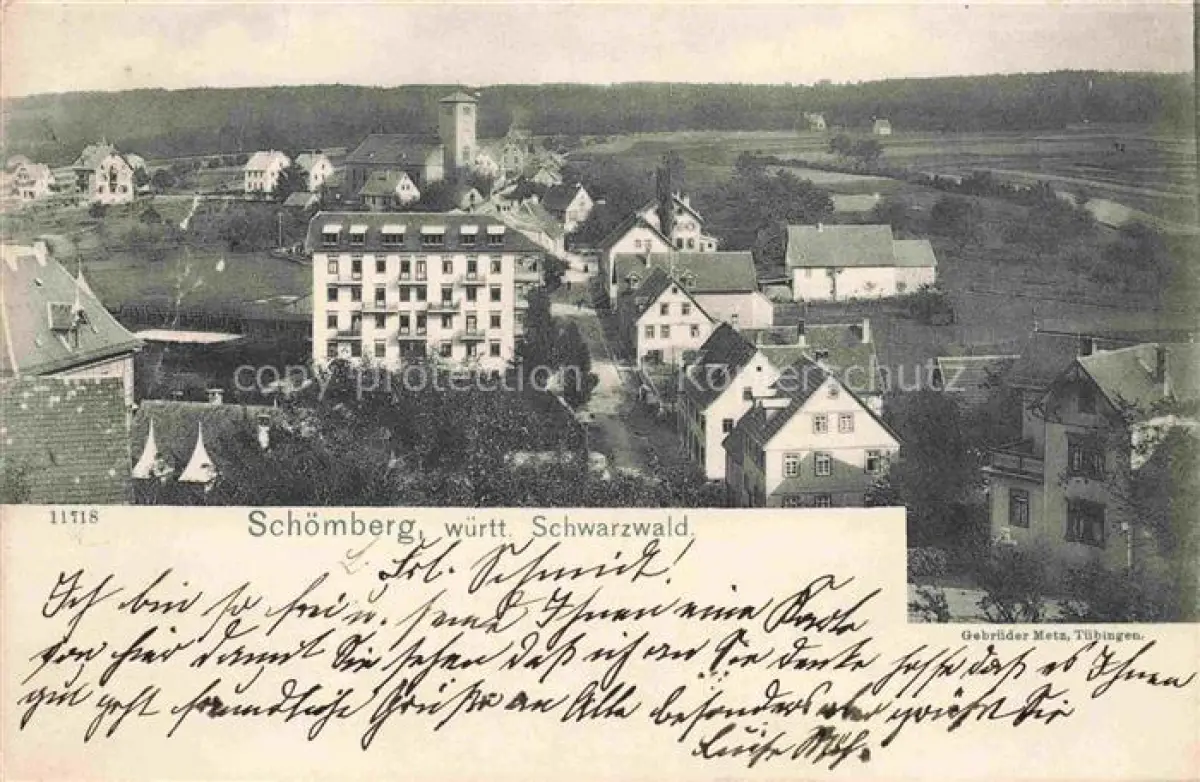 copy protection Kopierschutz
11718 Schömberg, württ. Schwarzwald.
Gebrüder Metz, Tübingen.
L. Frl. Schmidt!
Ich bin so frei u. sende Ihnen eine Karte
von hier damit Sie sehen daß ich an Sie denke hoffe daß es Ihnen
gut geht freundliche Grüße an Alle besonders aber grüßt Sie
Luise